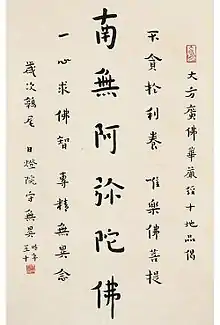 大方廣佛華嚴經十地品偈
不貪於利養 唯樂佛菩提
南無阿彌陀佛
一心求佛智 專精無異念
歲次鶉尾 日燈院字無畏 時年五十